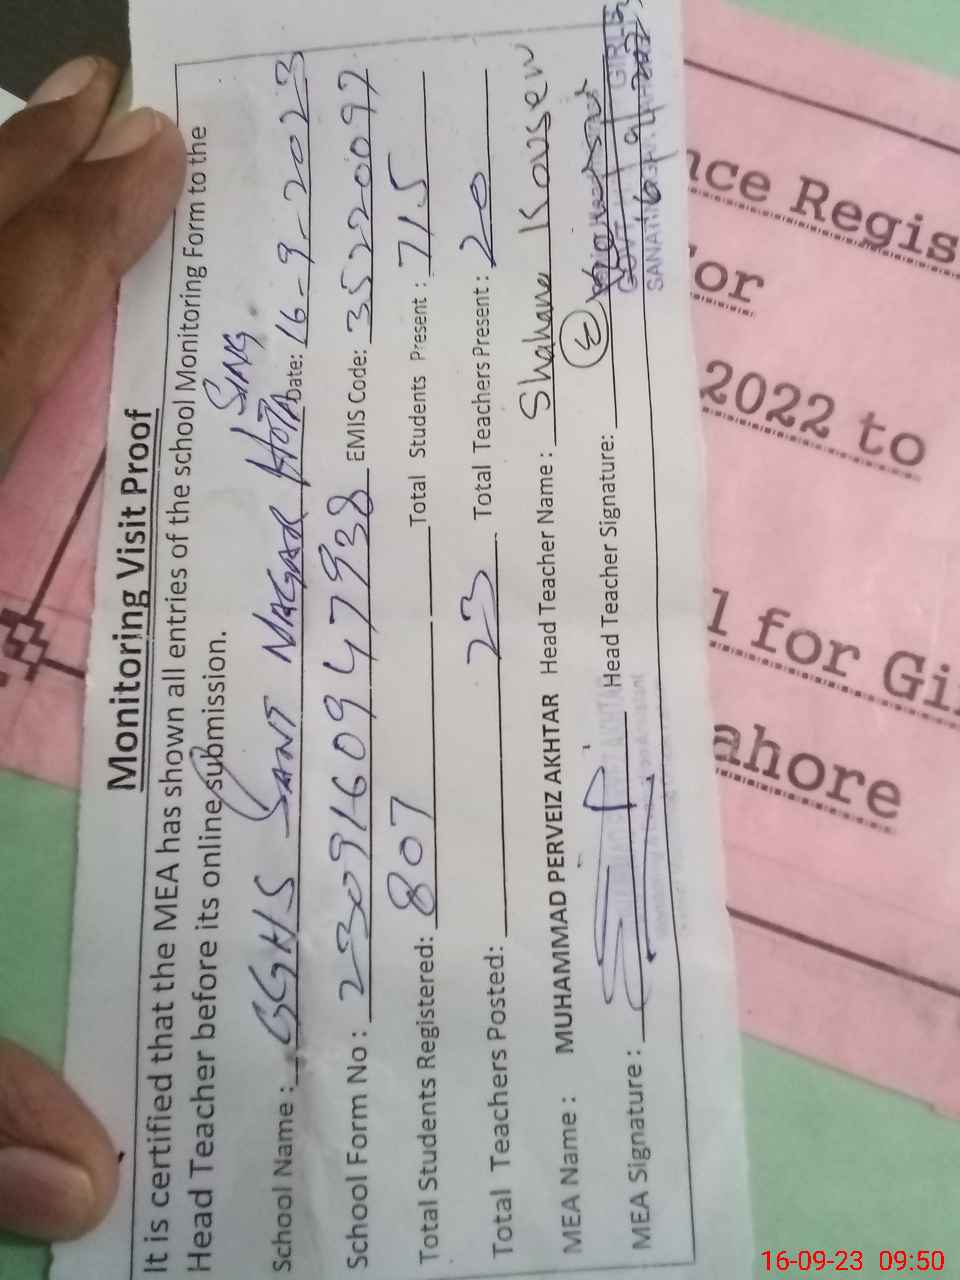 Monitoring Visit Proof
It is certified that the MEA has shown all entries of the school Monitoring Form to the
Head Teacher before its online submission.
School Name : GGHS SANT NAGAR KOTA SING Date: 16-9-2023
School Form No : 230916094 7938 EMIS Code: 35220097
Total Students Registered: 807 Total Students Present : 715
Total Teachers Posted: 23 Total Teachers Present : 20
MEA Name : MUHAMMAD PERVEIZ AKHTAR Head Teacher Name : Shahana Kousen
MEA Signature : Head Teacher Signature:
GIRLS
16/9/2023
nce Regis
or
2022 to
l for Gi
ahore
16-09-23 09:50